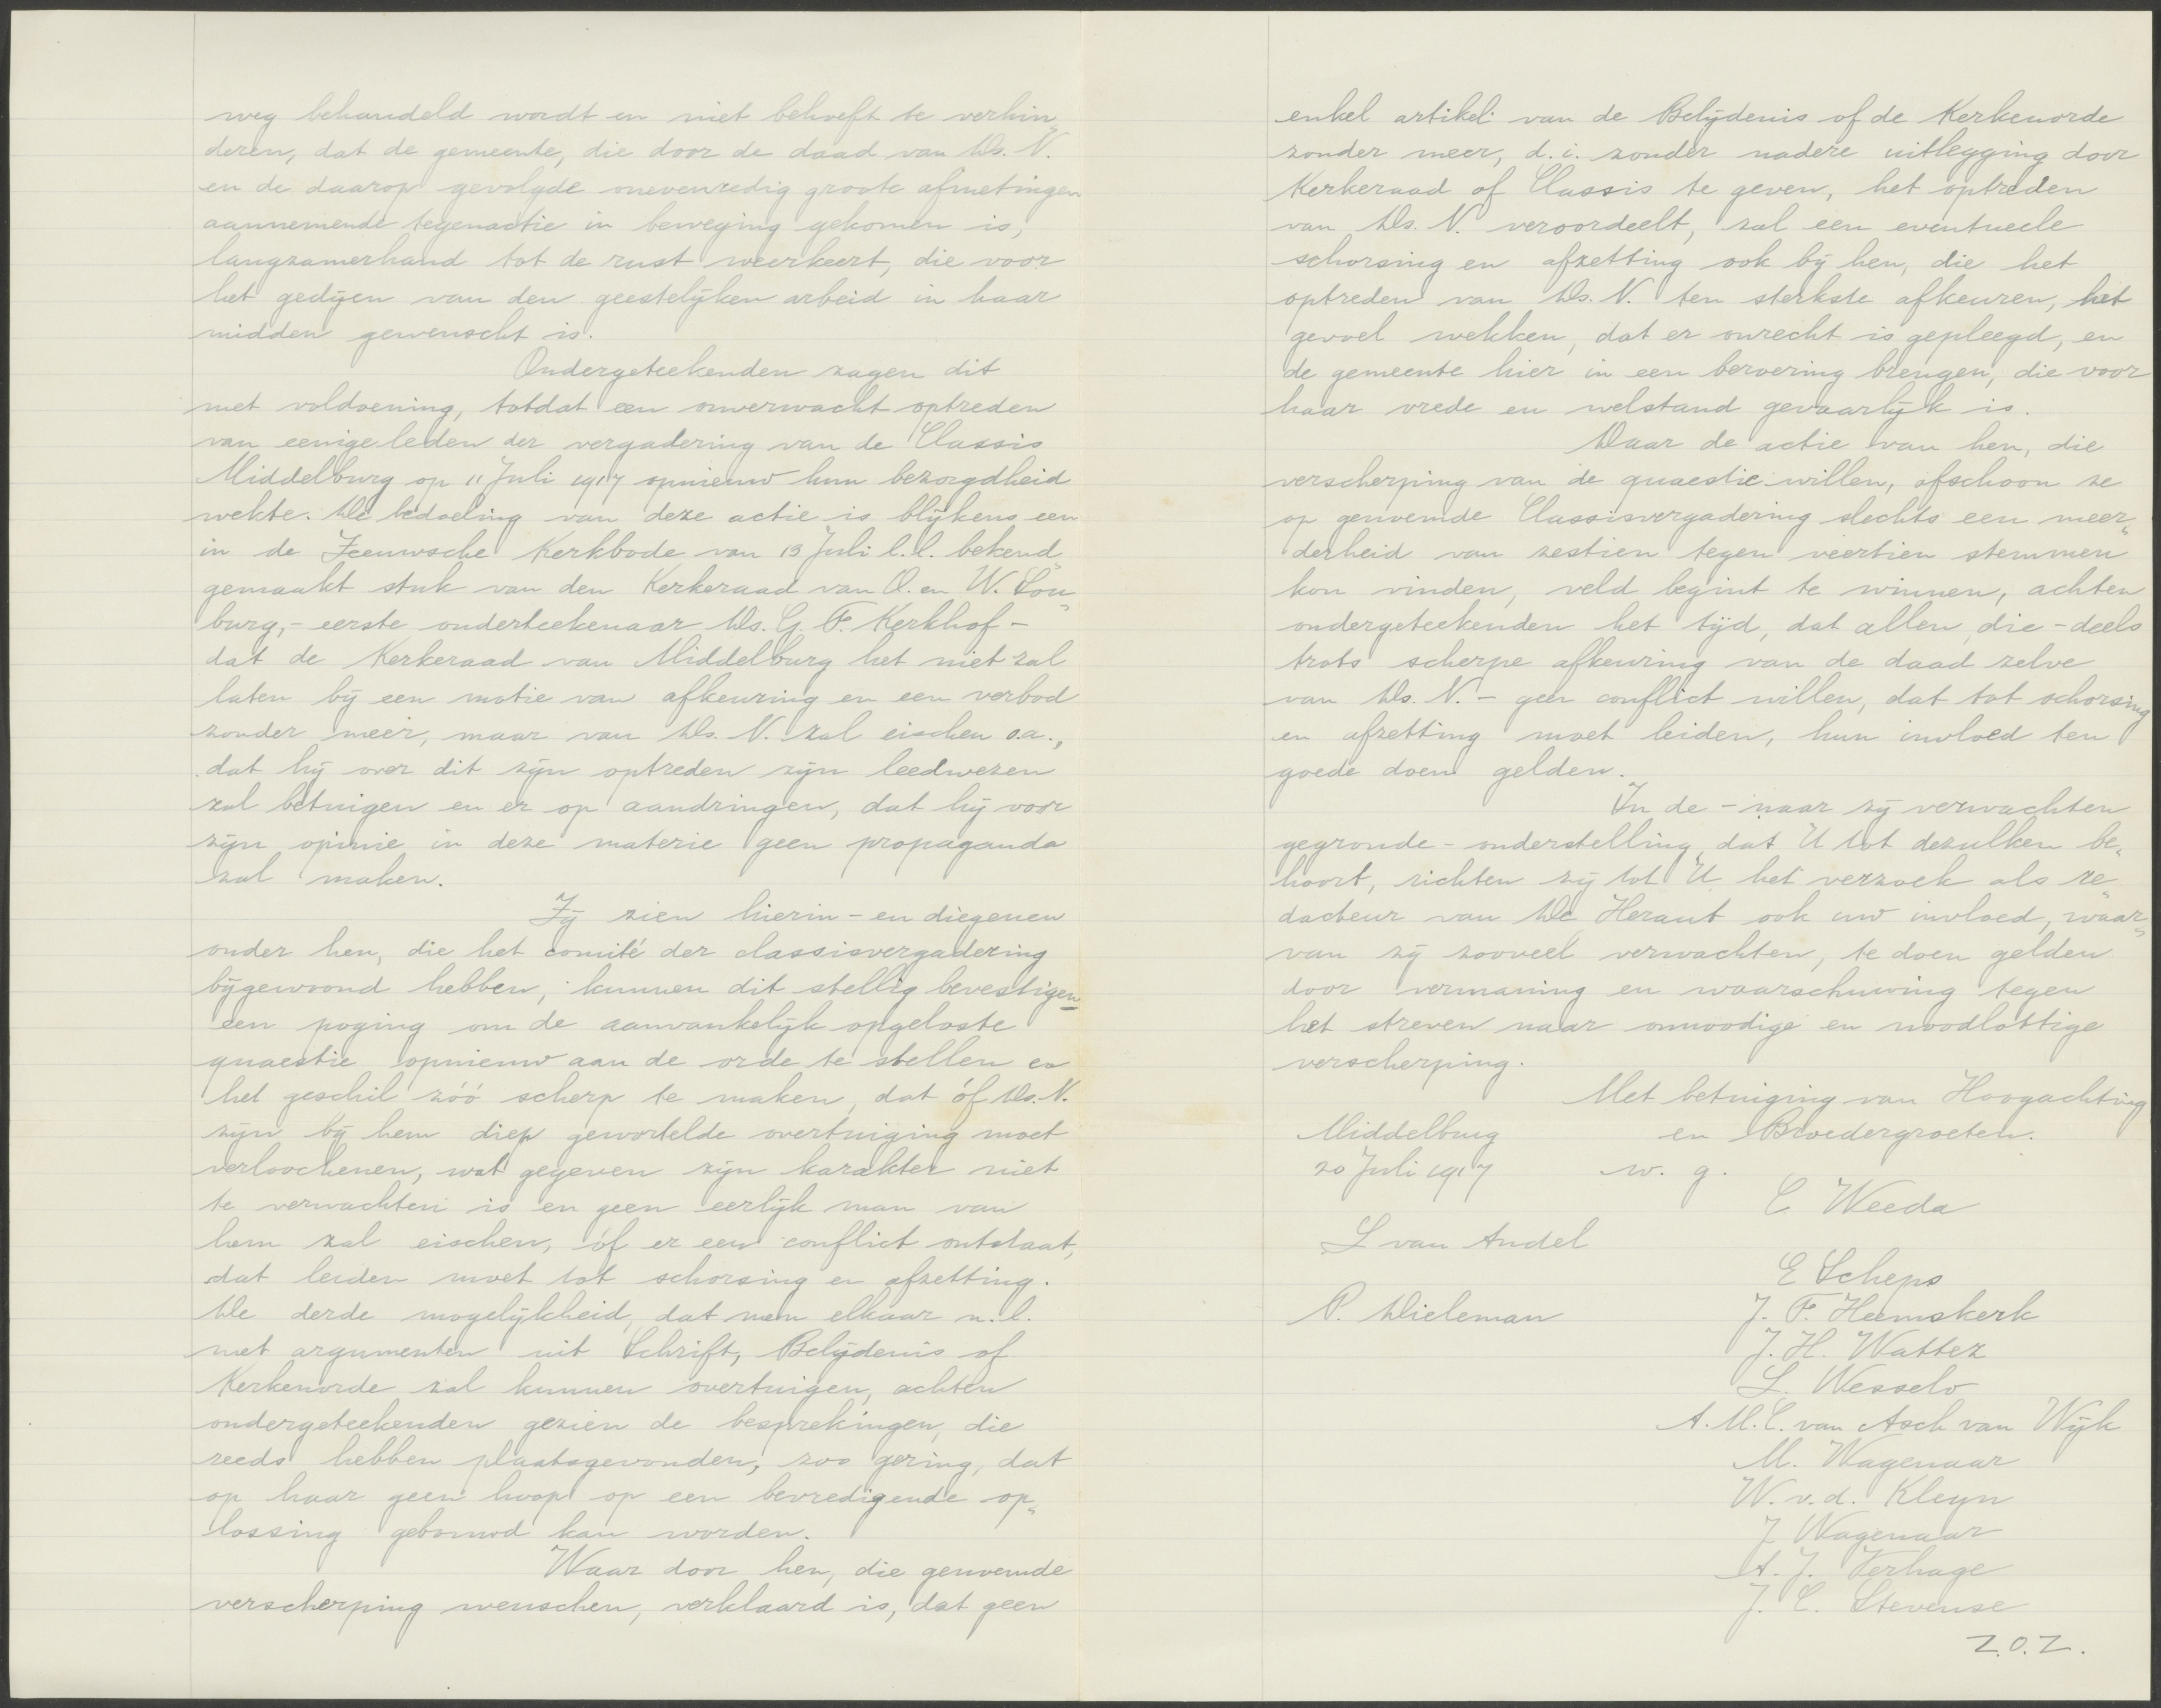 weg behandeld wordt en niet behoeft te verhin„
deren, dat de gemeente, die door de daad van Ds. N.
en de daarop gevolgde onevenredig groote afmetingen
aannemende tegenactie in beweging gekomen is,
langzamerhand tot de rust weerkeert, die voor
het gedijen van den geestelijken arbeid in haar
midden gewenscht is.
Ondergeteekenden zagen dit
met voldoening, totdat een onverwacht optreden
van eenige leden der vergadering van de Classis
Middelburg op 11 Juli 1917 opnieuw hun bezorgdheid
wekte. De bedoeling van deze actie is blijkens een
in de Zeeuwsche Kerkbode van 13 Juli l.l. bekend„
gemaakt stuk van den Kerkeraad van O. en W. Sou„
burg, - eerste onderteekenaar Ds. G. F. Kerkhof -
dat de Kerkeraad van Middelburg het niet zal
laten bij een motie van afkeuring en een verbod
zonder meer, maar van Ds. N. zal eischen o.a.,
dat hij over dit zijn optreden zijn leedwezen
zal betuigen en er op aandringen, dat hij voor
zijn opinie in deze materie geen propaganda
zal maken.
Zij zien hierin - en diegenen
onder hen, die het comité der classisvergadering
bijgewoond hebben, kunnen dit stellig bevestigen
een poging om de aanvankelijk opgeloste
quaestie opnieuw aan de orde te stellen en
het geschil zóó scherp te maken, dat óf Ds. N.
zijn bij hem diep gewortelde overtuiging moet
verloochenen, wat gegeven zijn karakter niet
te verwachten is en geen eerlijk man van
hem zal eischen, óf er een conflict ontstaat,
dat leiden moet tot schorsing en afzetting.
De derde mogelijkheid, dat men elkaar n.l.
met argumenten uit Schrift, Belijdenis of
Kerkenorde zal kunnen overtuigen, achten
ondergeteekenden gezien de besprekingen, die
reeds hebben plaatsgevonden, zoo gering, dat
op haar geen hoop op een bevredigende op„
lossing gebouwd kan worden.
Waar door hen, die genoemde
verscherping wenschen, verklaard is, dat geen
enkel artikel van de Belijdenis of de Kerkenorde
zonder meer, d.i. zonder nadere uitlegging door
Kerkeraad of Classis te geven, het optreden
van Ds. N. veroordeelt, zal een eventueele
schorsing en afzetting ook bij hen, die het
optreden van Ds. N. ten sterkste afkeuren, het
gevoel wekken, dat er onrecht is gepleegd, en
de gemeente hier in een beroering brengen, die voor
haar vrede en welstand gevaarlijk is.
Daar de actie van hen, die
verscherping van de quaestie willen, ofschoon ze
op genoemde Classisvergadering slechts een meer„
derheid van zestien tegen veertien stemmen
kon vinden, veld begint te winnen, achten
ondergeteekenden het tijd, dat allen, die - deels
trots scherpe afkeuring van de daad zelve
van Ds. N. - geen conflict willen, dat tot schorsing
en afzetting moet leiden, hun invloed ten
goede doen gelden.
In de - naar zij verwachten
gegronde - onderstelling, dat U tot dezulken be„
hoort, richten zij tot U het verzoek als re„
dacteur van De Heraut ook uw invloed, waar„
van zij zooveel verwachten, te doen gelden
door vermaning en waarschuwing tegen
het streven naar onnoodige en noodlottige
verscherping.
Met betuiging van Hoogachting
Middelburg en Broedergroeten.
20 Juli 1917 w. g.
C Weeda
L van Andel
E Scheps
P. Dieleman J. F. Heemskerk
J. H. Wattez
L. Wesselo
A. M. C. van Asch van Wijk
M. Wagenaar
W. v. d. Kleyn
J Wagenaar
A. J. Verhage
J. C. Stevense
Z.O.Z.